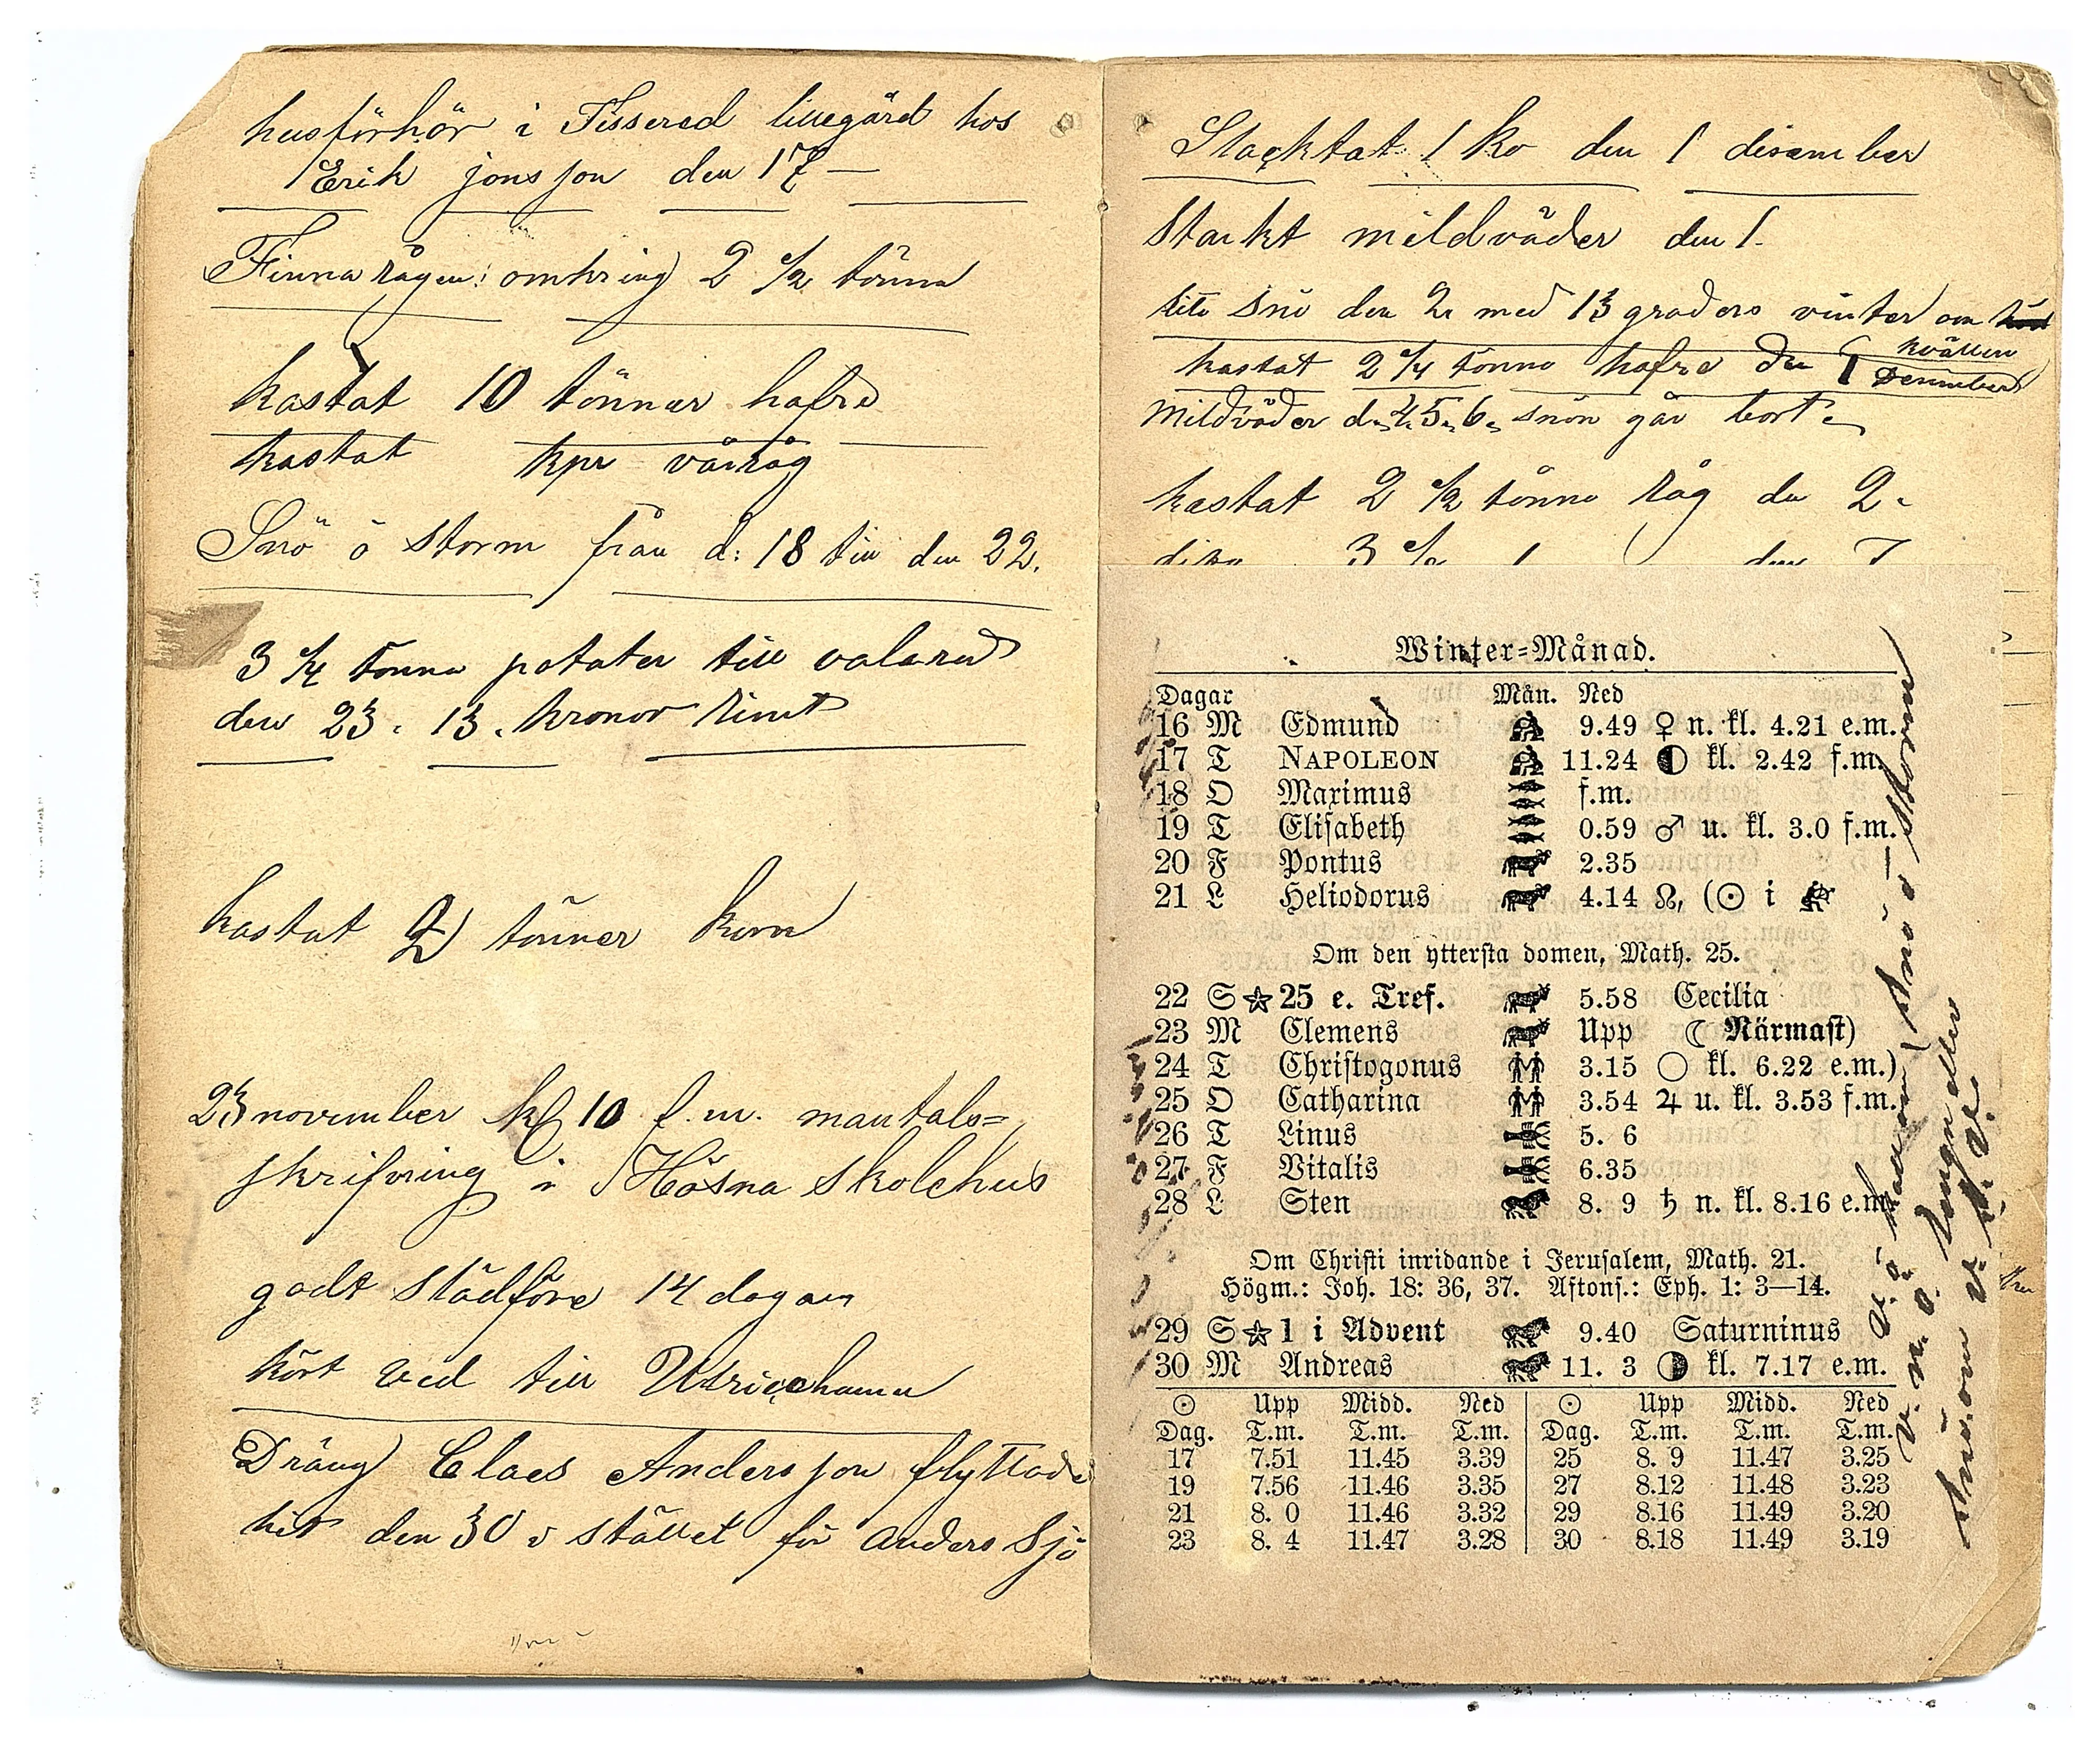 husförhör i Fissered lillegård hos
Erik jonsson den 17 —
Finna rågen: omkring 2 1/2 tönna
kastat 10 tönnor hafre
kastat kpr vårråg
Snö ö storm från d: 18 till den 22.
3 1/4 tönna potater till valared
den 23. 13. kronor
kastat 2 tönner korn
23 november kl 10 f.m. mantals=
skrifning i Hösna skolehus
godt slädföre 14 dagar
kört ved till Ulricehamn
Dräng Claes Andersson flyttade
hit den 30 i stället för Anders Sjö
Slacktat 1 ko den 1 disember
Starkt mildväder den 1.
lite snö den 2 med 13 graders vinter om
kvällen
kastat 2 1/4 tönno hafre den 1 December
Mildväder d. 4. 5. 6. snön går bort
kastat 2 1/2 tönno råg de 2.
Winter=Månad.
Dagar Mån. Ned
16 M Edmund 9.49 ♀ n. kl. 4.21 e.m.
17 T NAPOLEON 11.24 kl. 2.42 f.m.
18 O Maximus f.m.
19 T Elisabeth 0.59 ♂ u. kl. 3.0 f.m.
20 F Pontus 2.35
21 L Heliodorus 4.14 ☊, (☉ i
Om den yttersta domen, Math. 25.
22 S 25 e. Tref. 5.58 Cecilia
23 M Clemens Upp ☾ Närmast)
24 T Christogonus 3.15 ○ kl. 6.22 e.m.)
25 O Catharina 3.54 ♃ u. kl. 3.53 f.m.
26 T Linus 5. 6
27 F Vitalis 6.35
28 L Sten 8. 9 ♄ n. kl. 8.16 e.m.
Om Christi inridande i Jerusalem, Math. 21.
Högm.: Joh. 18: 36, 37. Aftons.: Eph. 1: 3—14.
29 S 1 i Advent 9.40 Saturninus
30 M Andreas 11. 3 kl. 7.17 e.m.
☉ Upp Midd. Ned ☉ Upp Midd. Ned
Dag. T.m. T.m. T.m. Dag. T.m. T.m. T.m.
17 7.51 11.45 3.39 25 8. 9 11.47 3.25
19 7.56 11.46 3.35 27 8.12 11.48 3.23
21 8. 0 11.46 3.32 29 8.16 11.49 3.20
23 8. 4 11.47 3.28 30 8.18 11.49 3.19
snö ö storm